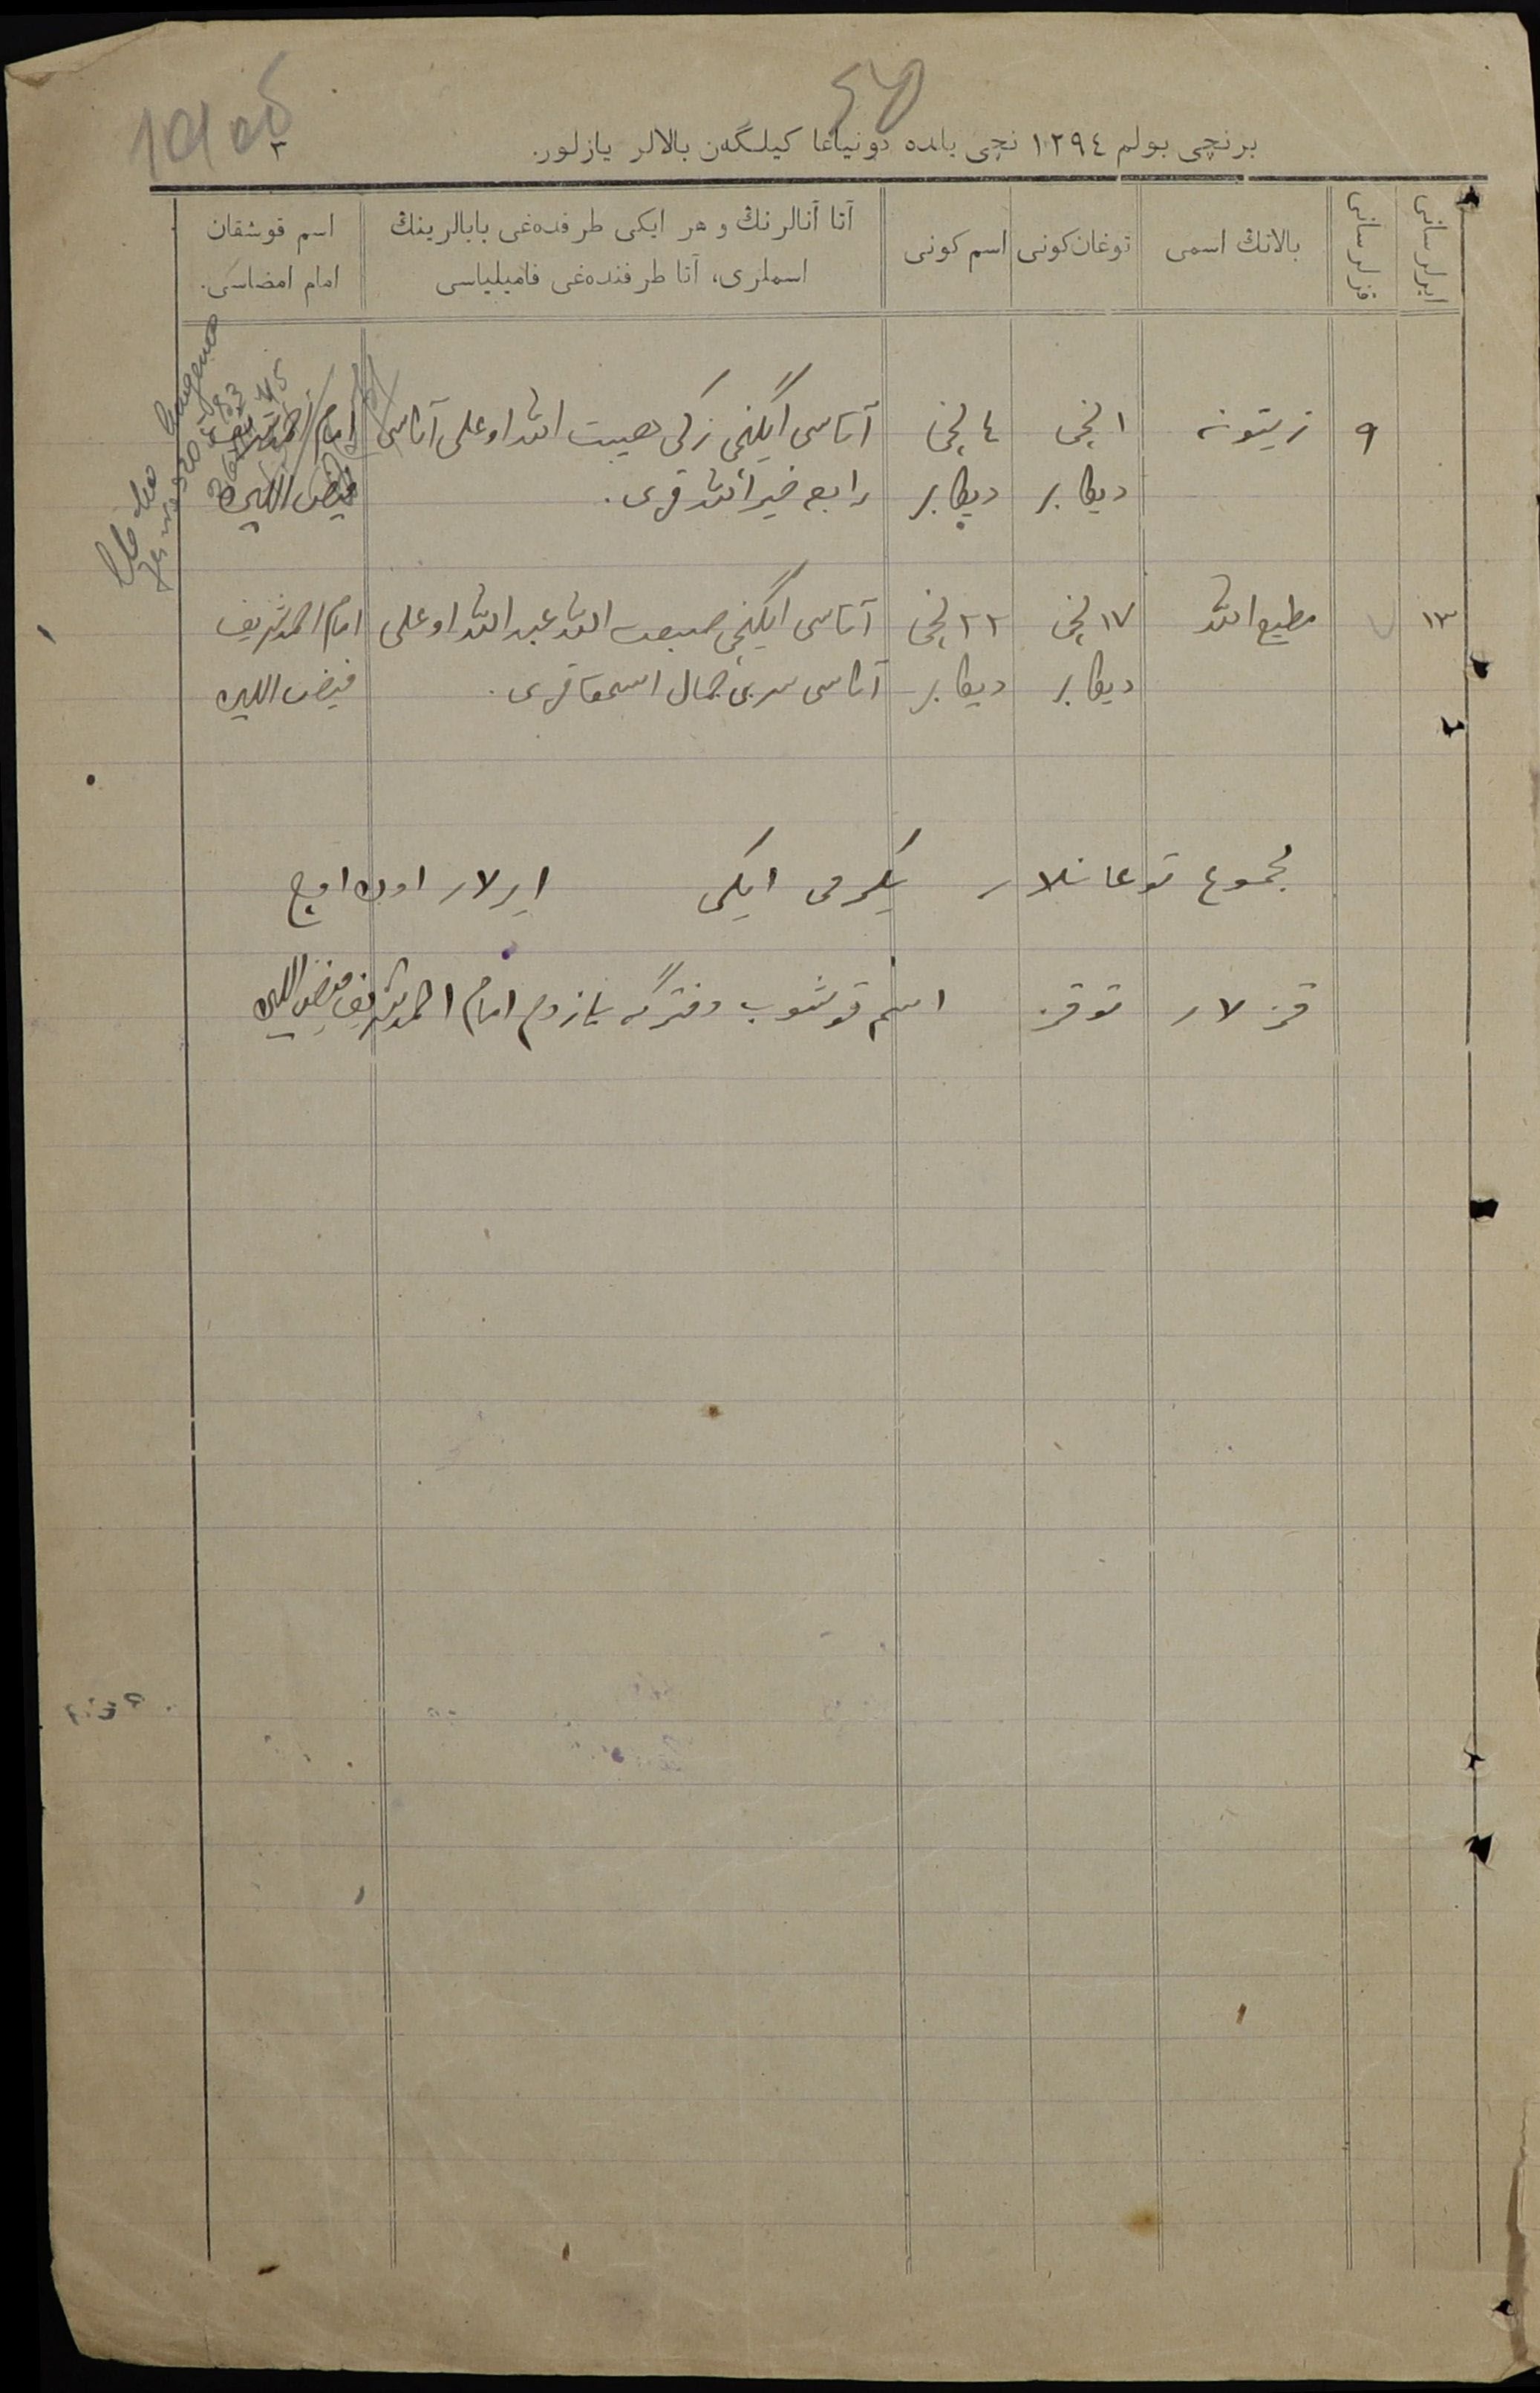 برنچی بولم ١٢٩٤ نچی یلده دونیاغا کیلگەن بالالر یازلور.
٣
ایرلر سانی
قزلر سانی
بالانڭ اسمی
توغان کونی
اسم کونی
آتا آنالرنڭ و هر ایکی طرفدەغی بابالرینڭ
اسملری، آتا طرفندەغی فامیلیاسی
اسم قوشقان
امام امضاسی.
٩
زیتونه
١ نچی
دیکابر
٤ نچی
دیکابر
آتاسی ایگنچی زکی هیبت الله اوغلی آناسی
رابعه خیرالله قزی.
امام احمدشریف
فیض اللین
١٣
مطیع الله
١٧ نچی
دیکابر
٢٢ نچی
دیکابر
آتاسی ایگنچی صبغت الله عبد الله اوغلی
آناسی جمال اسحق قزی.
امام احمدشریف
فیض اللین
مجموع توغانلار یکرمی ایکی ایرلار اون اوچ
قزلار توقز اسم قوشوب دفترگه یازدم امام احمدشریف فیض اللین